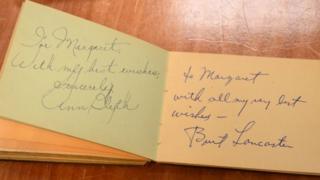 To Margaret,
With my best wishes,
Sincerely
Ann Blyth
To Margaret
with all my very best
wishes —
Burt Lancaster